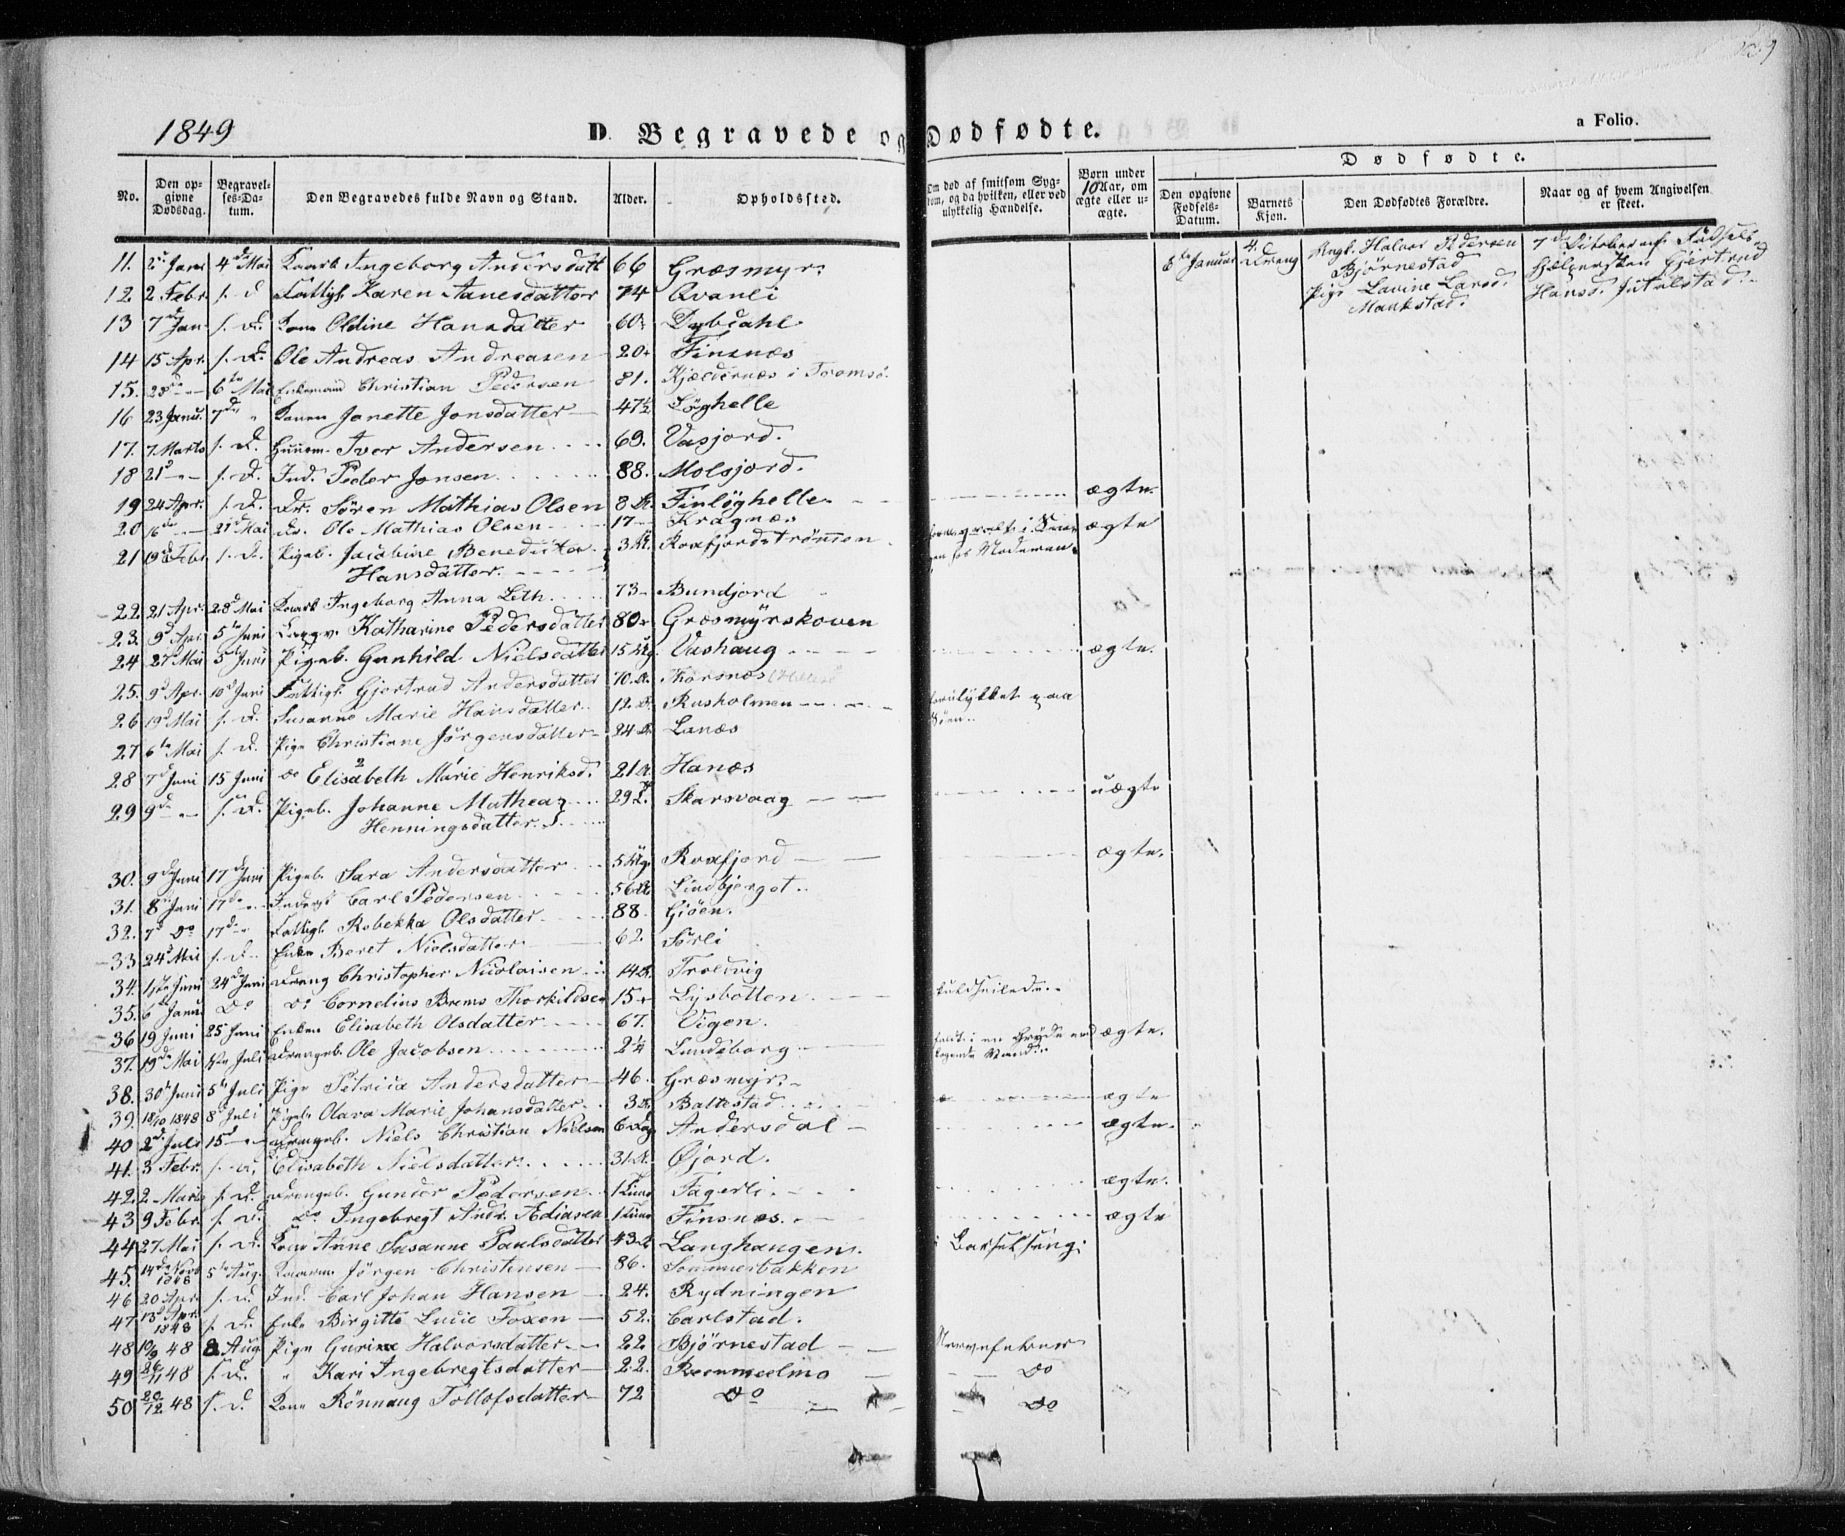 1849
D. Begravede og Dødfødte.
a Folio.
No. Den opgivne Dødsdag. Begravelses-Datum. Den Begravedes fulde Navn og Stand. Alder. Opholdssted. Om død af smitsom Sygdom, og da hvilken, eller ved ulykkelig Hændelse. Børn under 10 Aar, om ægte eller uægte. Dødfødte. Den opgivne Fødsels-Datum. Barnets Kjøn. Den Dødfødtes Forældre. Naar og af hvem Angivelsen er skeet.
11. 4de Mai Ingeborg Andersdatt 66 Græsmyr. 8de Januar Dreng Halvor Pedersen Bjørnestad Pige Lavine Larsd. Hansd.
12. 2 Febr s. d. Karen Aanesdatter 74 Qvanli
13 7 Jan. s. D. Kone Oldine Hansdatter 60 Dybdahl
14 15 Apr. s. D. Ole Andreas Andreasen 20 Finsnæs
15. 28de 6te Mai Enkemand Christian Pedersen 81. Kjeldernæs i Tromsø
16 23 Janu. 7de Konen Janette Jonsdatter 47½ Løghelle
17. 7. Marts s. D. Huusm. Iver Andersen 69. Vasjord.
18 21d s. D. Ind. Peder Jonsen 88. Molsjord.
19 24 Apr. s. D. Dr. Sören Mathias Olsen 8 Finløghelle ægte.
20 16de 21d Mai Ole Mathias Olsen 17 Kragnæs ægte
21 19d Febr s. D. Pigeb. Jacobine Benedicta Hansdatter. 3 Roxfjordströmen
22. 21 Apr. 28d Mai Ingeborg Anna Leth 73 Bundjord
23. 9d Apr. 5te Juni Katharine Pedersdatter 80 Græsmyrskoven
24 27d Mai 5te Juni Pigeb. Gunhild Nielsdatter 15 Vashaug ægte.
25. 9d Apr. 10d Juni Gjertrud Andersdatter 70
26 19d Mai s. D. Susanne Marie Hansdatter 12 Rusholmen forulykket paa Søen.
27 6te Mai s. D. Pige Christiane Jörgensdatter 24 Lanæs
28 7d Juni 15 Juni do Elisabeth Marie Henriksd. 21 Hanæs
29 9de s. D. Pigeb. Johanne Mathea Henningsdatter 29 Skarsvaag uægte
30. 9d Juni 17d Juni Pigeb. Sara Andersdatter 5 Roxfjord ægte.
31. 8d Juni 17de Carl Pedersen 56 Lindbjerget
32. 7d Do 17de Rebekka Olsdatter 88 Gisen.
33 24d Mai s. D. Enke Beret Nielsdatter 62. Sørli
34. 24d Juni Dreng Christopher Nicolaisen 14 Troldvig
35. 6te Janu Do Do Cornelius Brems Thorkildsen 15 Lysbotten kuldseilede
36 19 Juni 25 Juni Enken Elisabeth Olsdatter 67. Vigen.
37. 19d Mai Juli Drengeb. Ole Jacobsen 2¼ Lundeborg ægte.
38. 30te Juni 5te Juli Pige Petrica Andersdatter 46 Græsmyr.
39. 18/10 1848 8d Juli Pigeb. Olava Marie Johansdatter 3 Baltestad ægte
40 2d Juli 15d Drengeb. Niels Christian Nielsen 6 Dage Andersdal ægte.
41. 3 Febr. s. D. Elisabeth Nielsdatter 31 Øjord.
42. 2 Marts s. D. Drengeb. Gunder Pedersen 1 Time Fagerli ægte.
43 9 Febr. s. D. Do Ingebregt Andr. 1 Time Finsnæs ægte
44 27 Mai s. D. Kone Anne Susanne Paulsdatter 43 Langhaugen i Barselseng
45. 14d Novb 1848 5te Aug. Jörgen Christensen 86. Sommerbakken
46 20 Apr. s. D. Ind. Carl Johan Hansen 24. Rydningen
47. 13d Apr. 1848 s. D. Enke Birgitte Lucie Foxen 52. Carlstad.
48 10/9 48 8 Aug. Pige Gurine Halvorsdatter 22 Bjørnestad Nervefeber
49 26/11 48 s. D. " Kari Ingebregtsdatter 22. Do
50 20/12 48 s. D. Kone Rönnaug Tollofsdatter 72 Do Do